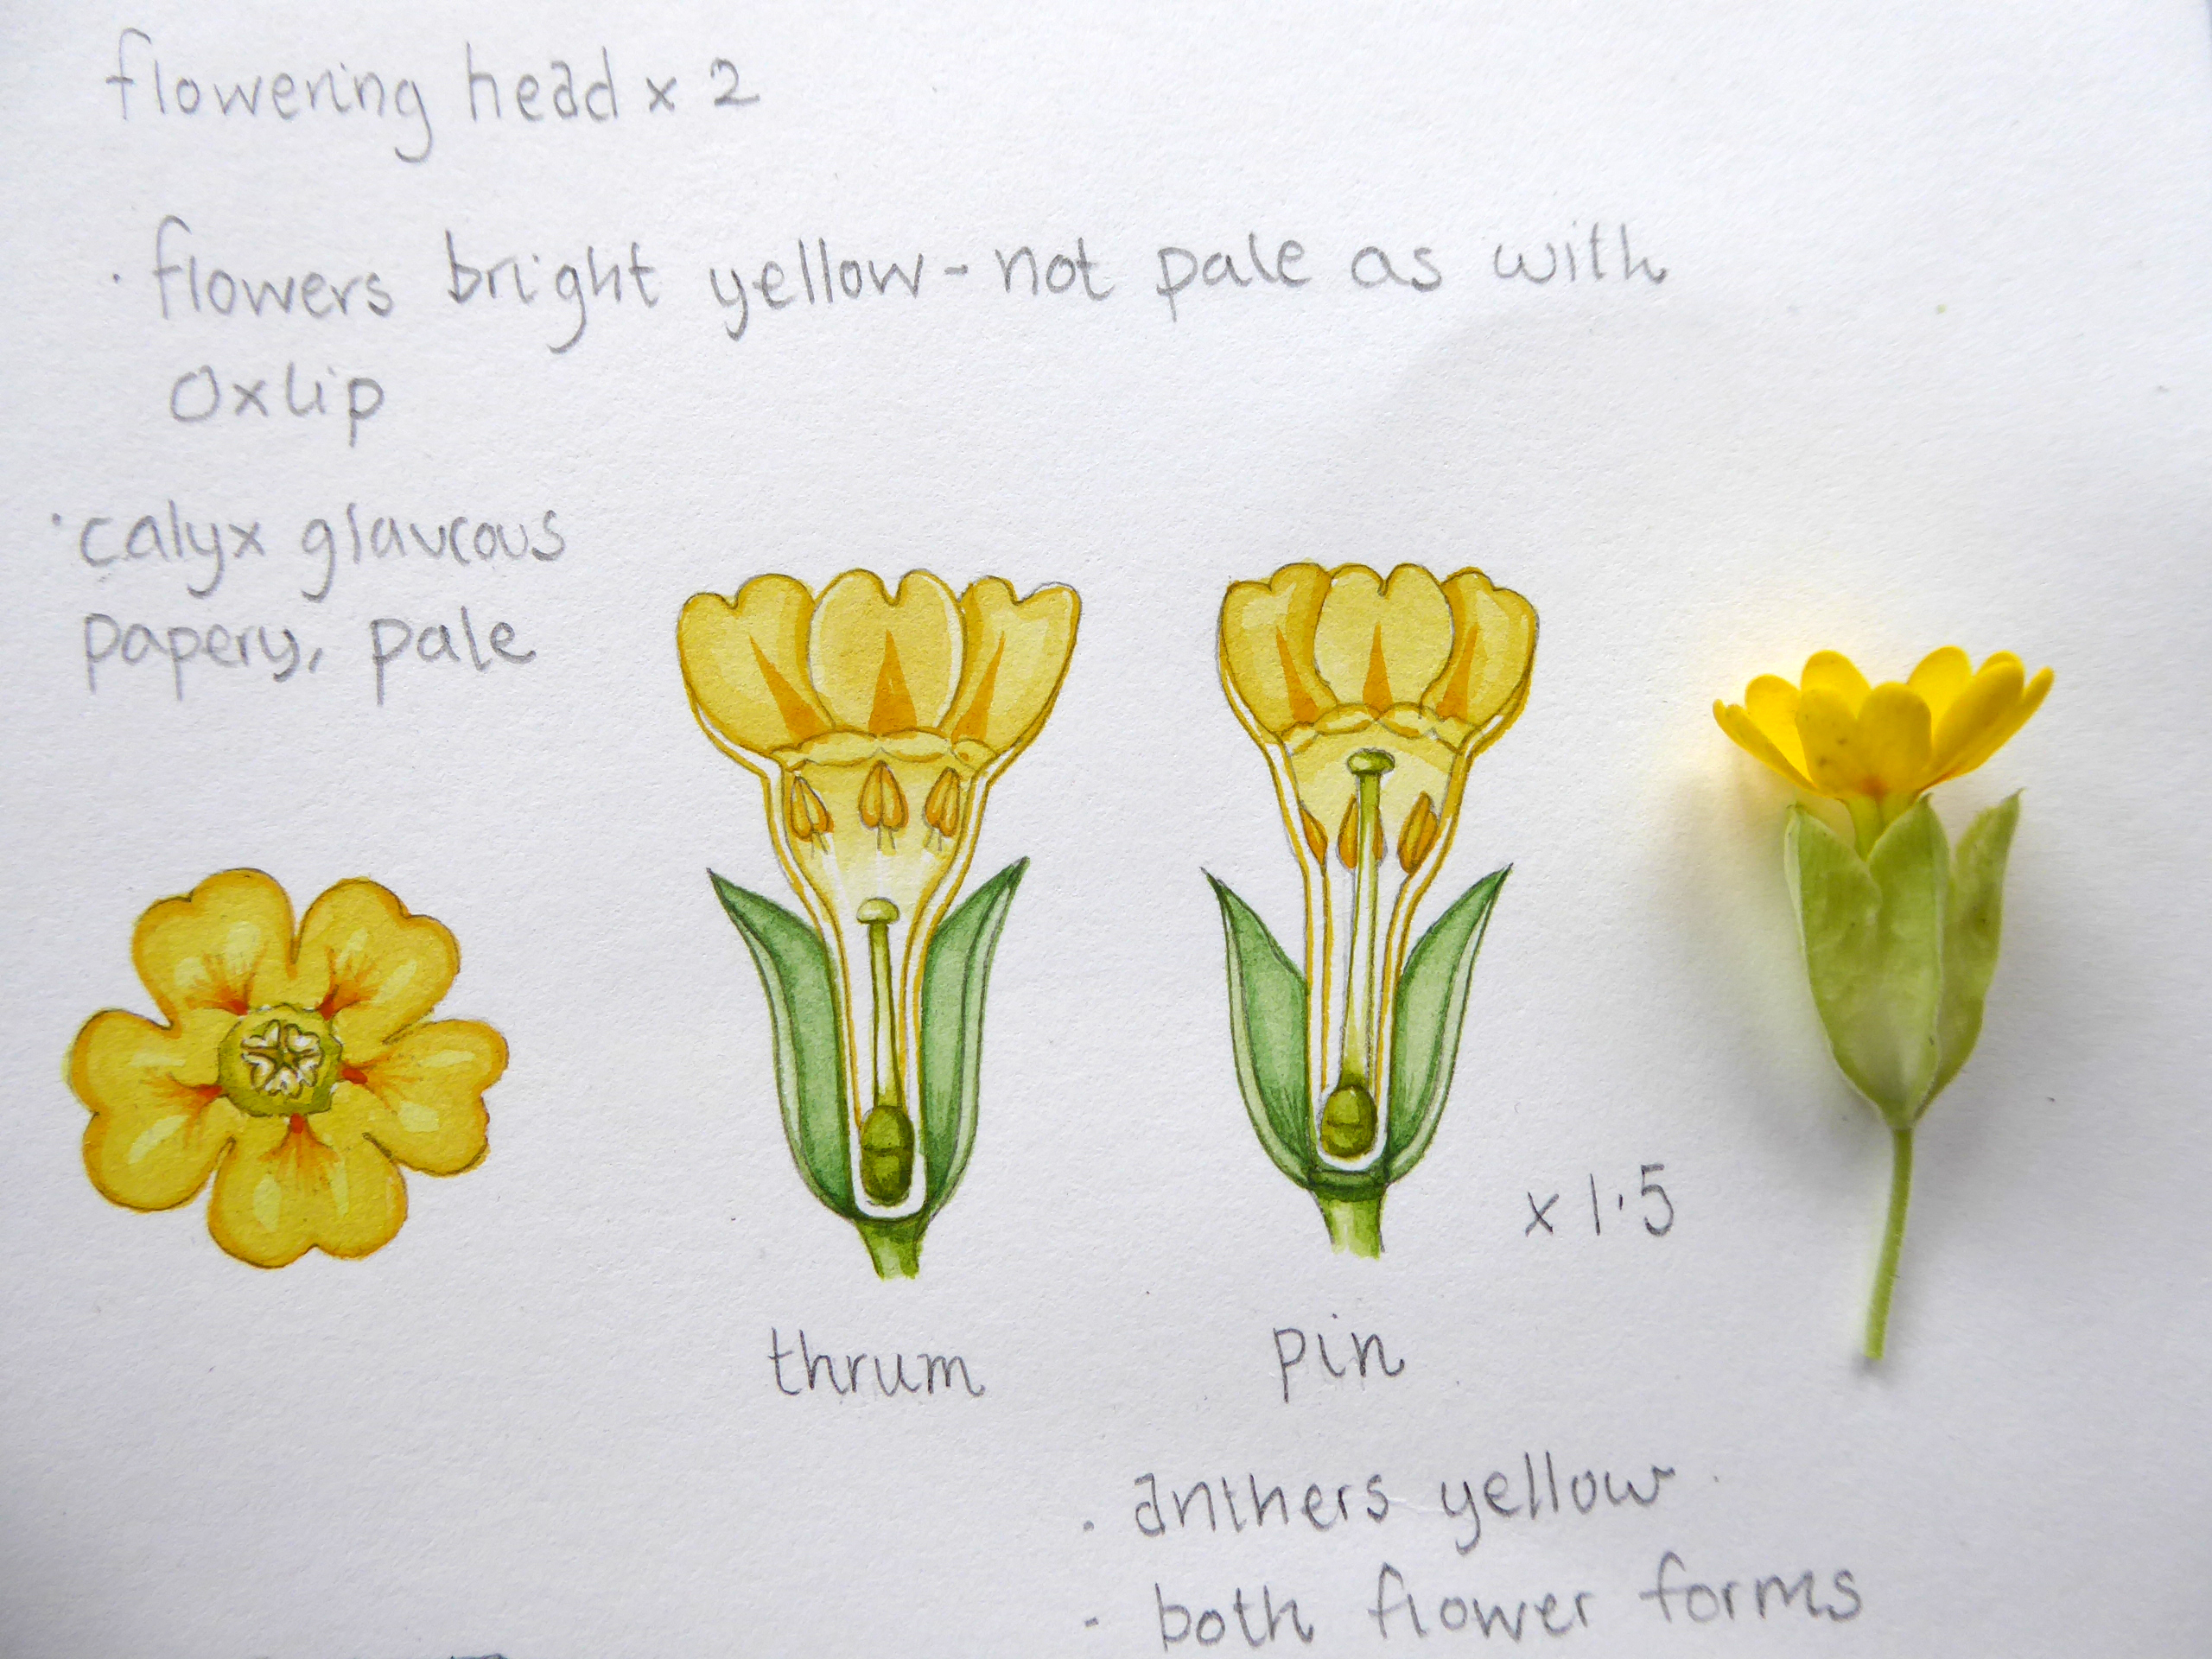 flowering head x 2
· flowers bright yellow - not pale as with
oxlip
· calyx glaucous
papery, pale
x 1.5
thrum
pin
· anthers yellow
- both flower forms